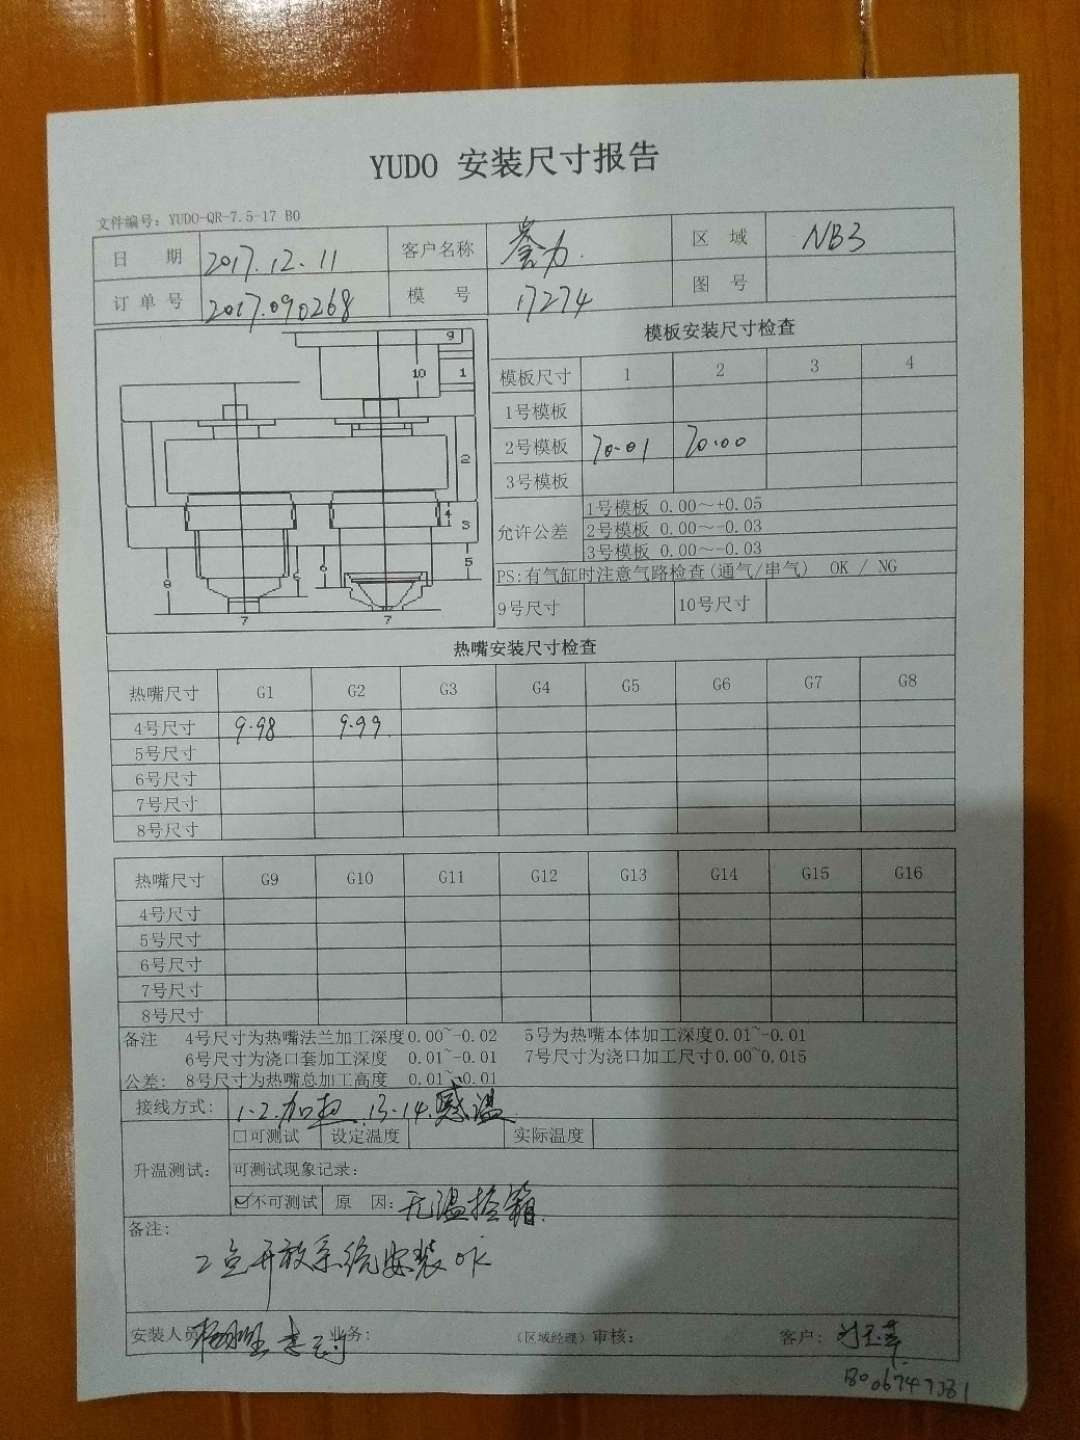 YUDO 安装尺寸报告
文件编号: YUDO-QR-7.5-17 B0
日 期 2017.12.11 客户名称 誉力. 区 域 NB3
订单号 2017.090268 模 号 17274 图 号
模板安装尺寸检查
9
10 1
2
4 3
5
8 6 6
7 7
模板尺寸 1 2 3 4
1号模板
2号模板 70.01 70.00
3号模板
允许公差
1号模板 0.00~+0.05
2号模板 0.00~-0.03
3号模板 0.00~-0.03
PS:有气缸时注意气路检查(通气/串气) OK / NG
9号尺寸 10号尺寸
热嘴安装尺寸检查
热嘴尺寸 G1 G2 G3 G4 G5 G6 G7 G8
4号尺寸 9.98 9.99
5号尺寸
6号尺寸
7号尺寸
8号尺寸
热嘴尺寸 G9 G10 G11 G12 G13 G14 G15 G16
4号尺寸
5号尺寸
6号尺寸
7号尺寸
8号尺寸
备注 4号尺寸为热嘴法兰加工深度0.00~-0.02 5号为热嘴本体加工深度0.01~-0.01
6号尺寸为浇口套加工深度 0.01~-0.01 7号尺寸为浇口加工尺寸0.00~0.015
公差: 8号尺寸为热嘴总加工高度 0.01~-0.01
接线方式: 1-2.加热 13-14.感温
□可测试 设定温度 实际温度
升温测试: 可测试现象记录:
☑不可测试 原 因: 无温控箱.
备注:
2点开放系统安装OK
安装人员 业务: (区域经理)审核: 客户: